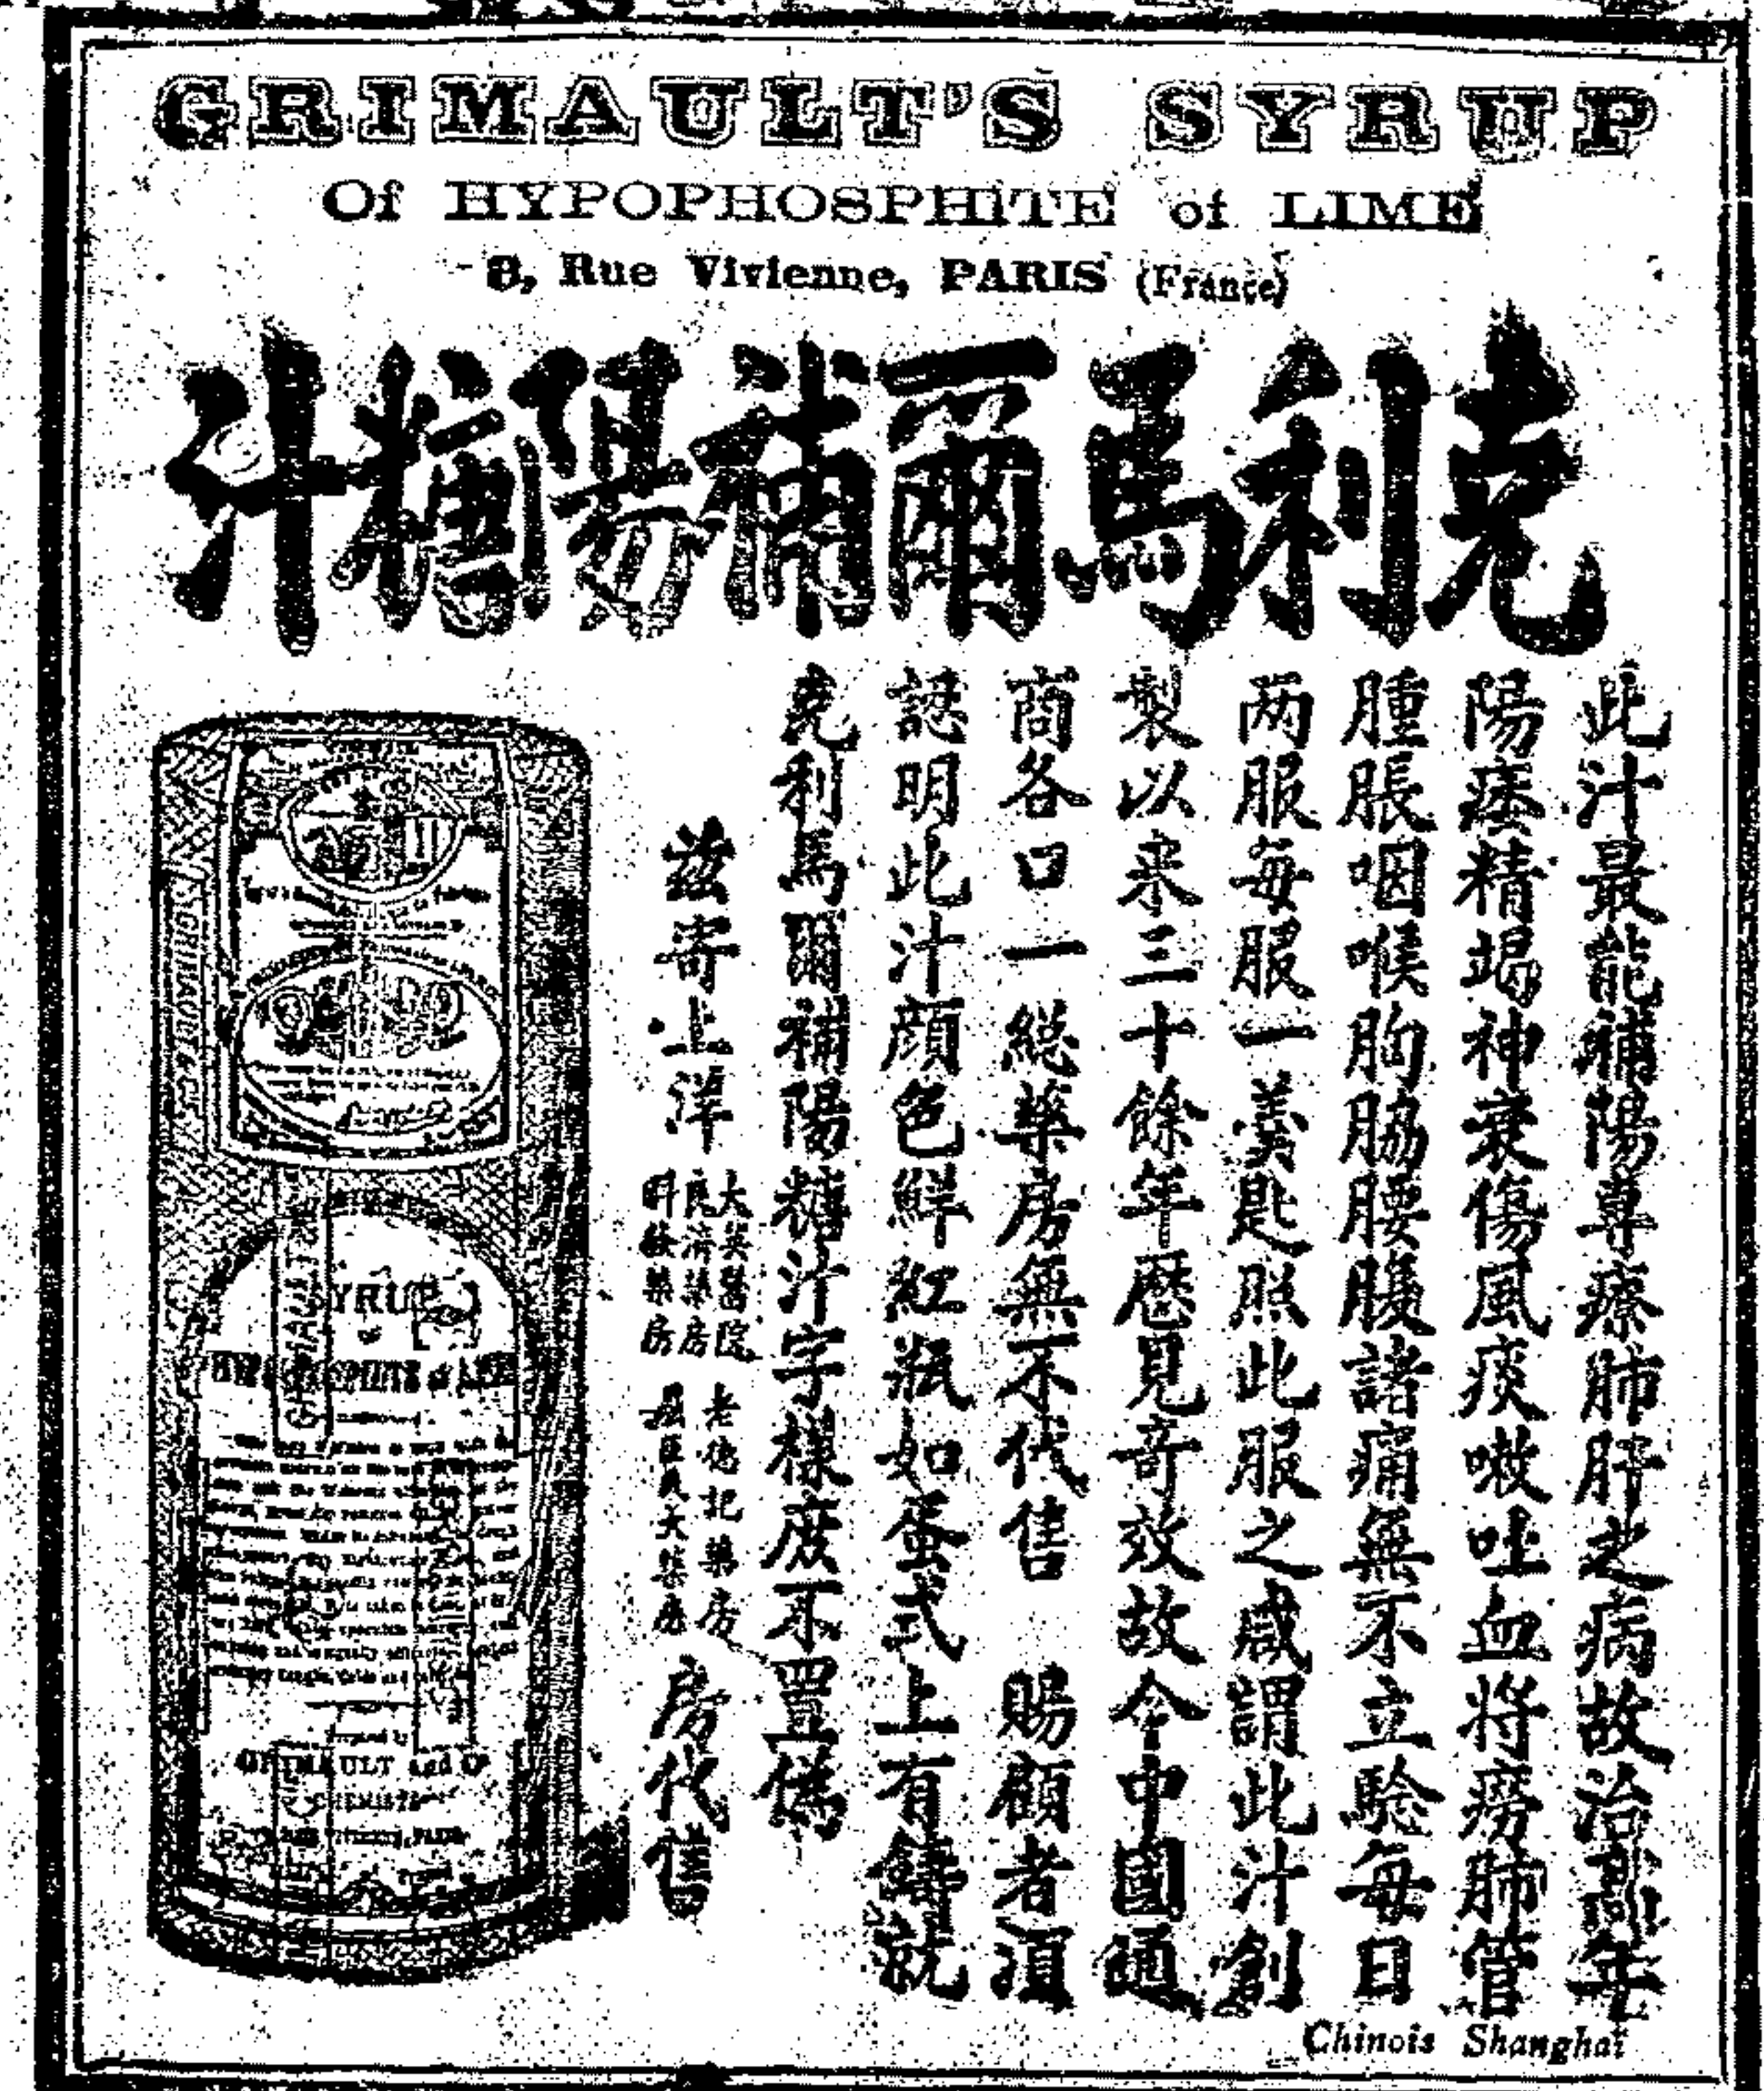 GRIMAULT'S SYRUP
Of HYPOPHOSPHITE of LIME
8, Rue Vivienne, PARIS (France)
克利馬爾補陽糖汁
此汁最能補陽專療肺肝之病故治高年
陽痿精竭神衰傷風痰嗽吐血將癆肺管
腫脹咽喉胸脇腰腹諸痛無不立驗每日
两服每服一羹匙照此服之咸謂此汁創
製以来三十餘年歷見奇效故今中國通
商各口一總藥房無不代售 賜顧者須
認明此汁顔色鮮紅瓶如蛋式上有鑄就
克利馬爾補陽糖汁字樣庶不置偽
茲寄上洋
大英醫院
良濟藥房
科發藥房
老德記藥房
屈臣氏大藥房
房代售
GRIMAULT & Co
SYRUP
of
HYPOPHOSPHITE of LIME
GRIMAULT and Co
CHEMISTS
Chinois Shanghai